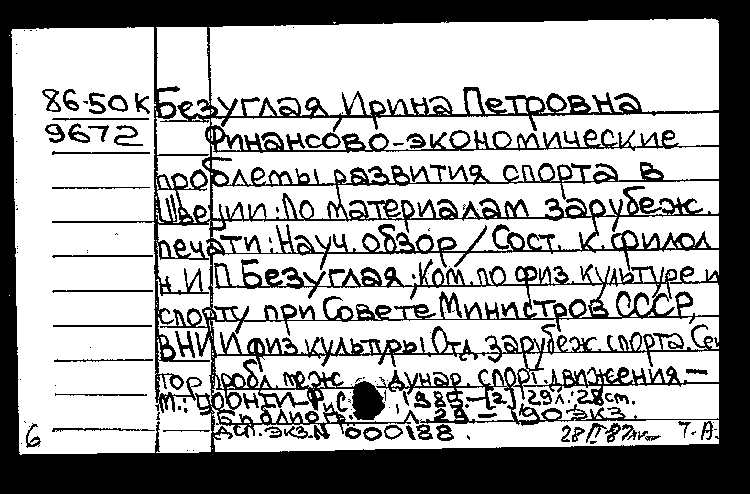 86-50К Безуглая Ирина Петровна
9672 Финансово-экономические
проблемы развития спорта в
Швеции: По материалам зарубеж.
печати: Науч. обзор / Сост. к. филол
н. И. П. Безуглая; Ком. по физ. культуре и
спорту при Совете Министров СССР,
ВНИИ физ. культры. Отд. зарубеж. спорта. Сек
тор пробл. меж дунар. спорт. движения. —
М.: ЦООНТИ-ФиС, 1986. — [2], 29 л.; 28 см.
Библиогр.: л. 29. — 190 экз.
Дсп. экз. N 000188.
6 Т. А.